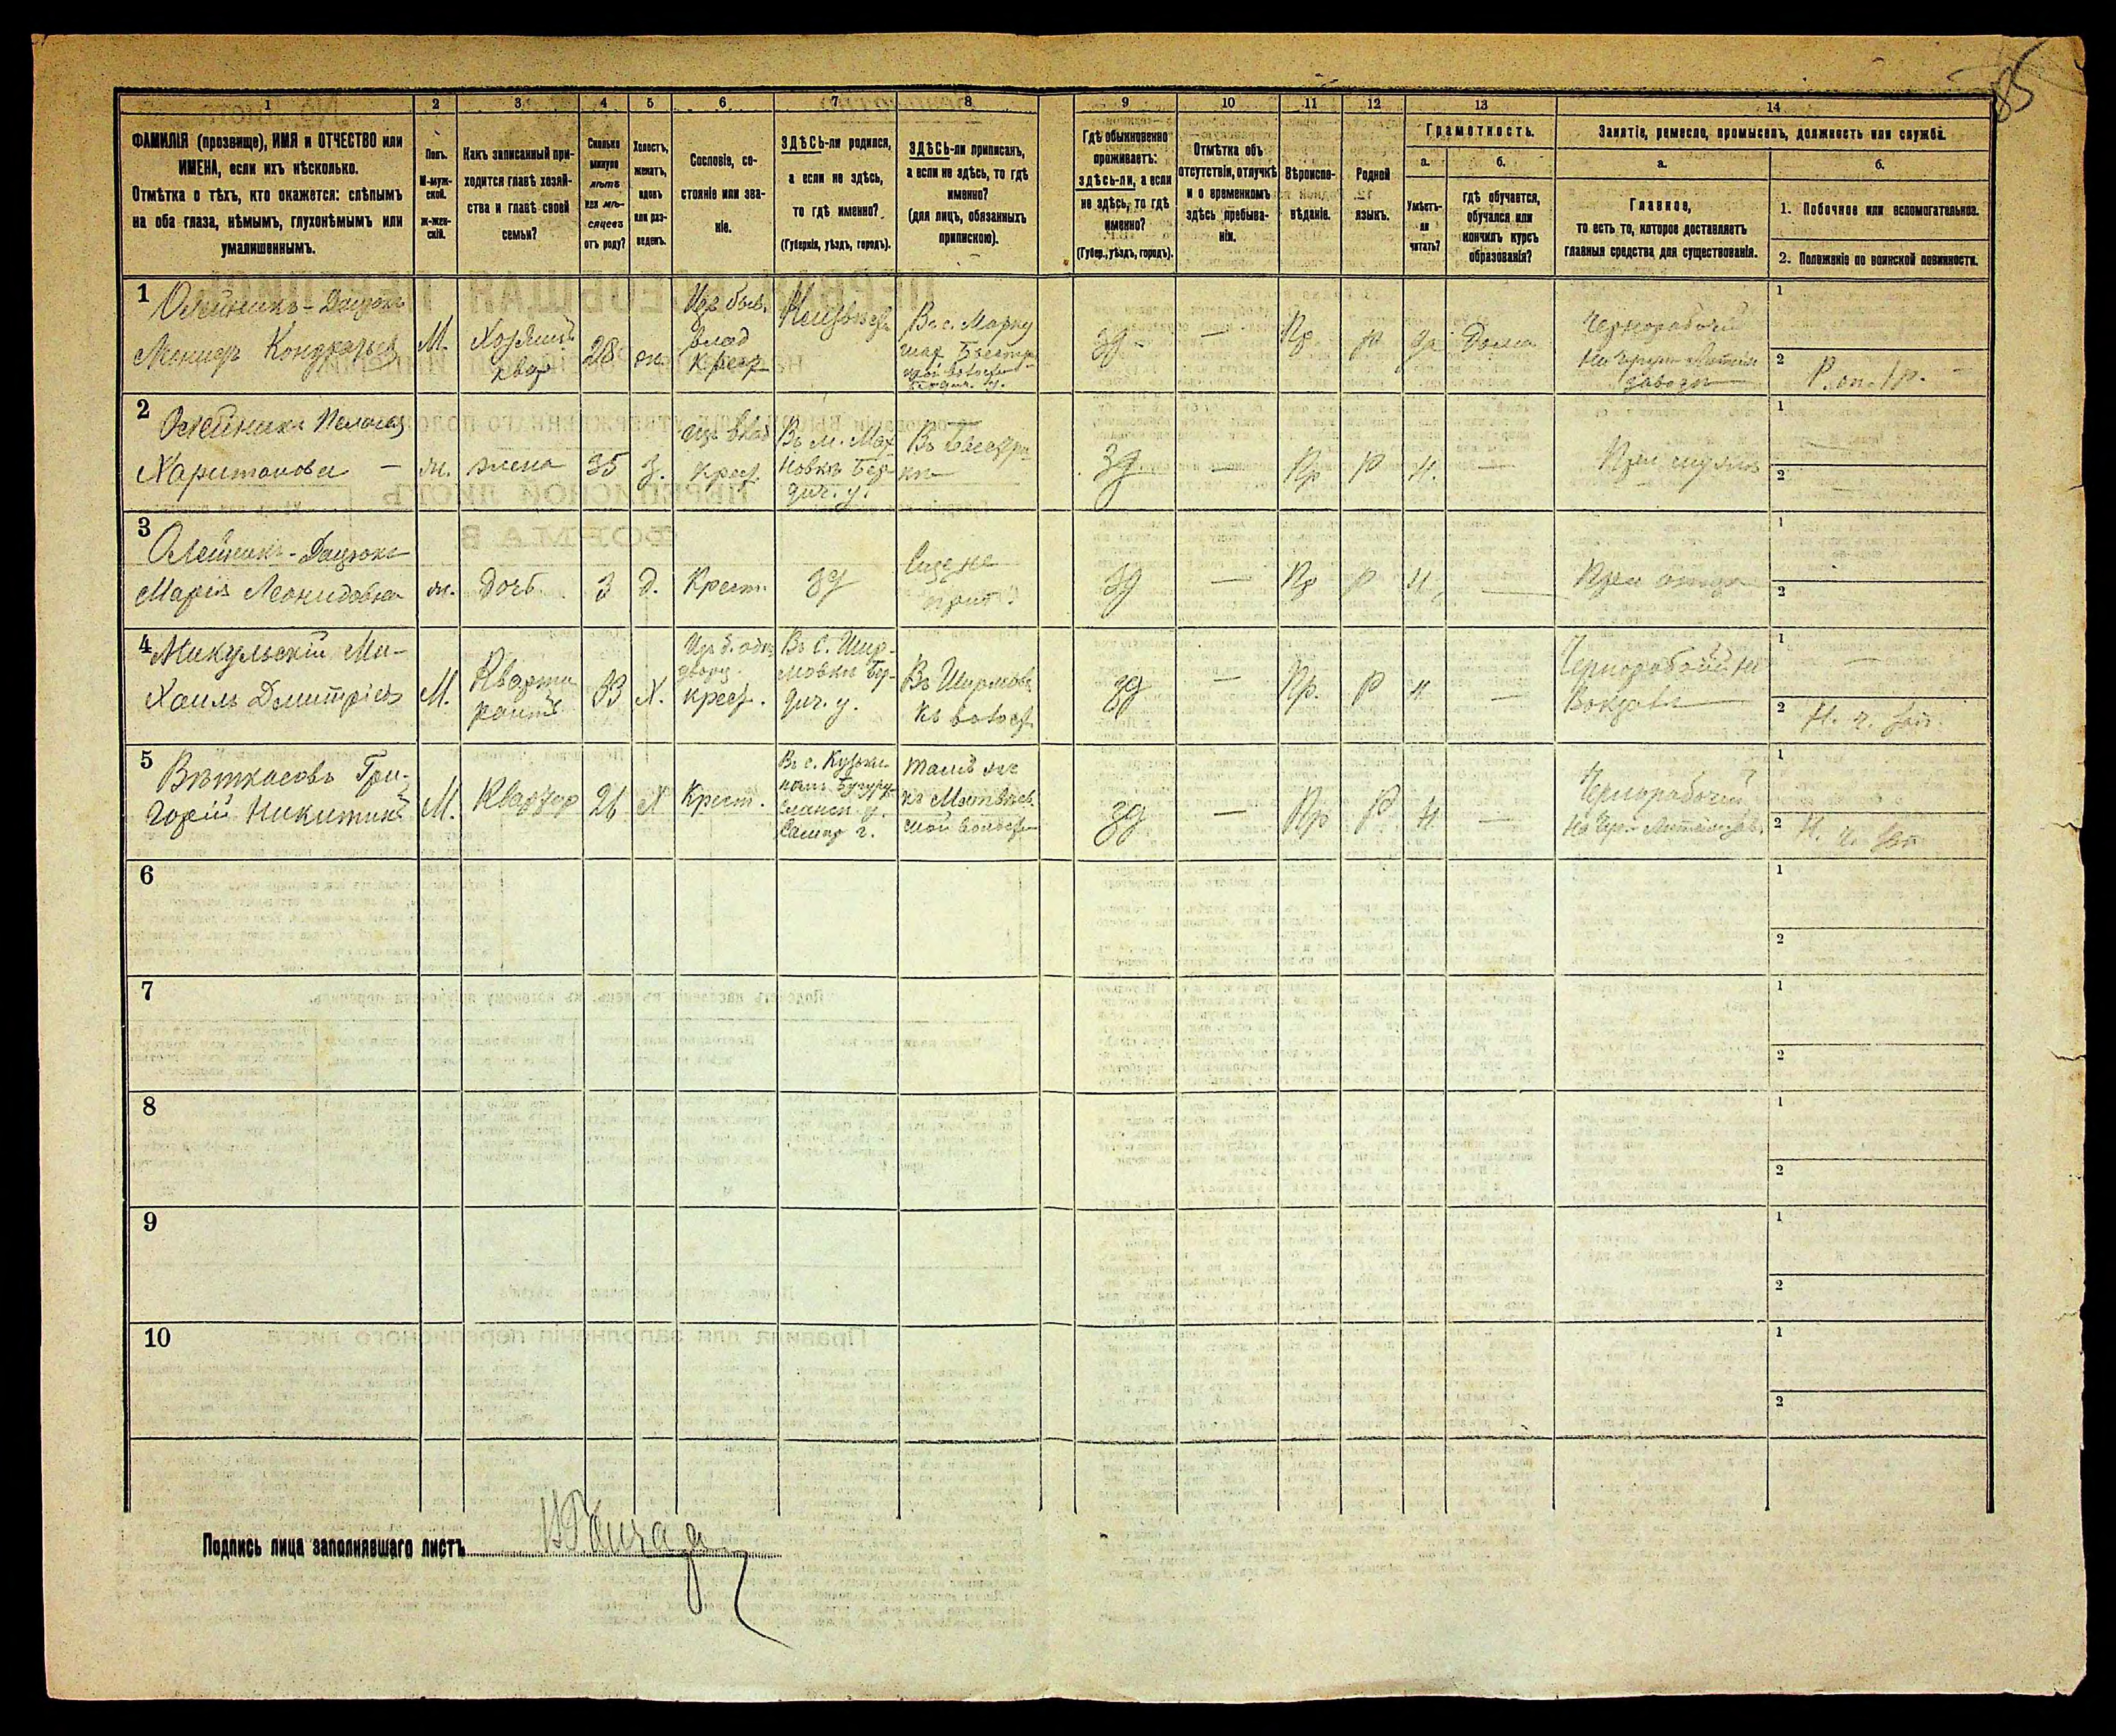 85
1
2
3
4
5
6
7
8
9
10
11
12
13
14
ФАМИЛІЯ (прозвище), ИМЯ и ОТЧЕСТВО или
ИМЕНА, если ихъ нѣсколько.
Отмѣтка о тѣхъ, кто окажется: слѣпымъ
на оба глаза, нѣмымъ, глухонѣмымъ или
умалишеннымъ.
Полъ.
М-муж-
ской.
ж-жен-
скій.
Какъ записанный при-
ходится главѣ хозяй-
ства и главѣ своей
семьи?
Сколько
минуло
лѣтъ
или мѣ-
сяцевъ
отъ роду?
Холостъ,
женатъ,
вдовъ
или раз-
веденъ.
Сословіе, со-
стояніе или зва-
ніе.
ЗДѢСЬ-ли родился,
а если не здѣсь,
то гдѣ именно?
(Губернія, уѣздъ, городъ).
ЗДѢСЬ-ли приписанъ,
а если не здѣсь, то гдѣ
именно?
(для лицъ, обязанныхъ
припискою).
Гдѣ обыкновенно
проживаетъ:
здѣсь-ли, а если
не здѣсь, то гдѣ
именно?
(Губер., уѣздъ, городъ).
Отмѣтка объ
отсутствіи, отлучкѣ
и о временномъ
здѣсь пребыва-
ніи.
Вѣроиспо-
вѣданіе.
Родной
языкъ.
Грамотность.
а.
Умѣетъ-
ли
читать?
б.
гдѣ обучается,
обучался или
кончилъ курсъ
образованія?
Занятіе, ремесло, промыселъ, должность или служба.
а.
Главное,
то есть то, которое доставляетъ
главныя средства для существованія.
б.
1. Побочное или вспомогательное.
2. Положеніе по воинской повинности.
1
Олейникъ-Дацюкъ
М.
28
ж.
Изъ быв.
влад
Крест
Въ с. Марку
зд -
—
Пр
Р
да
Дома
Чернорабочій
завода
1
2
2
Олейникъ Пелагея
Харитонова —
ж.
жена
35
З.
Изъ влад
Крест.
Въ м. Мах-
новкѣ Бер-
дич. у.
зд
—
Пр
Р
Н.
—
При мужѣ
1
—
2
—
3
Олейникъ-Дацюкъ
Марія Леонидовна
ж.
Дочь
3
Д.
Крест.
зд
Еще не
прип.
зд
—
Пр
Р
Н.
—
При отцѣ
1
2
4
Микульскій Ми-
хаилъ Дмитріевъ
М.
Кварти
рантъ
33
Х.
Изъ б. одно
двор.
крест.
Въ с. Шир-
мовкѣ Бер-
дич. у.
Въ Ширмовс
к. волост
зд
—
Пр.
Р
Н
—
Чернорабочій на
Вокзалѣ
1
—
2
5
Вѣткасовъ Гри-
горій Никитинъ
М.
Квартир
26
Х
Крест.
Бугурус-
ланск. у.
Самар г.
тамъ же
въ Матвѣев-
ской волости
зд
—
Пр
Р
Н
—
Чернорабочій
1
2
6
1
2
7
1
2
8
1
2
9
1
2
10
1
2
Подпись лица заполнявшаго листъ